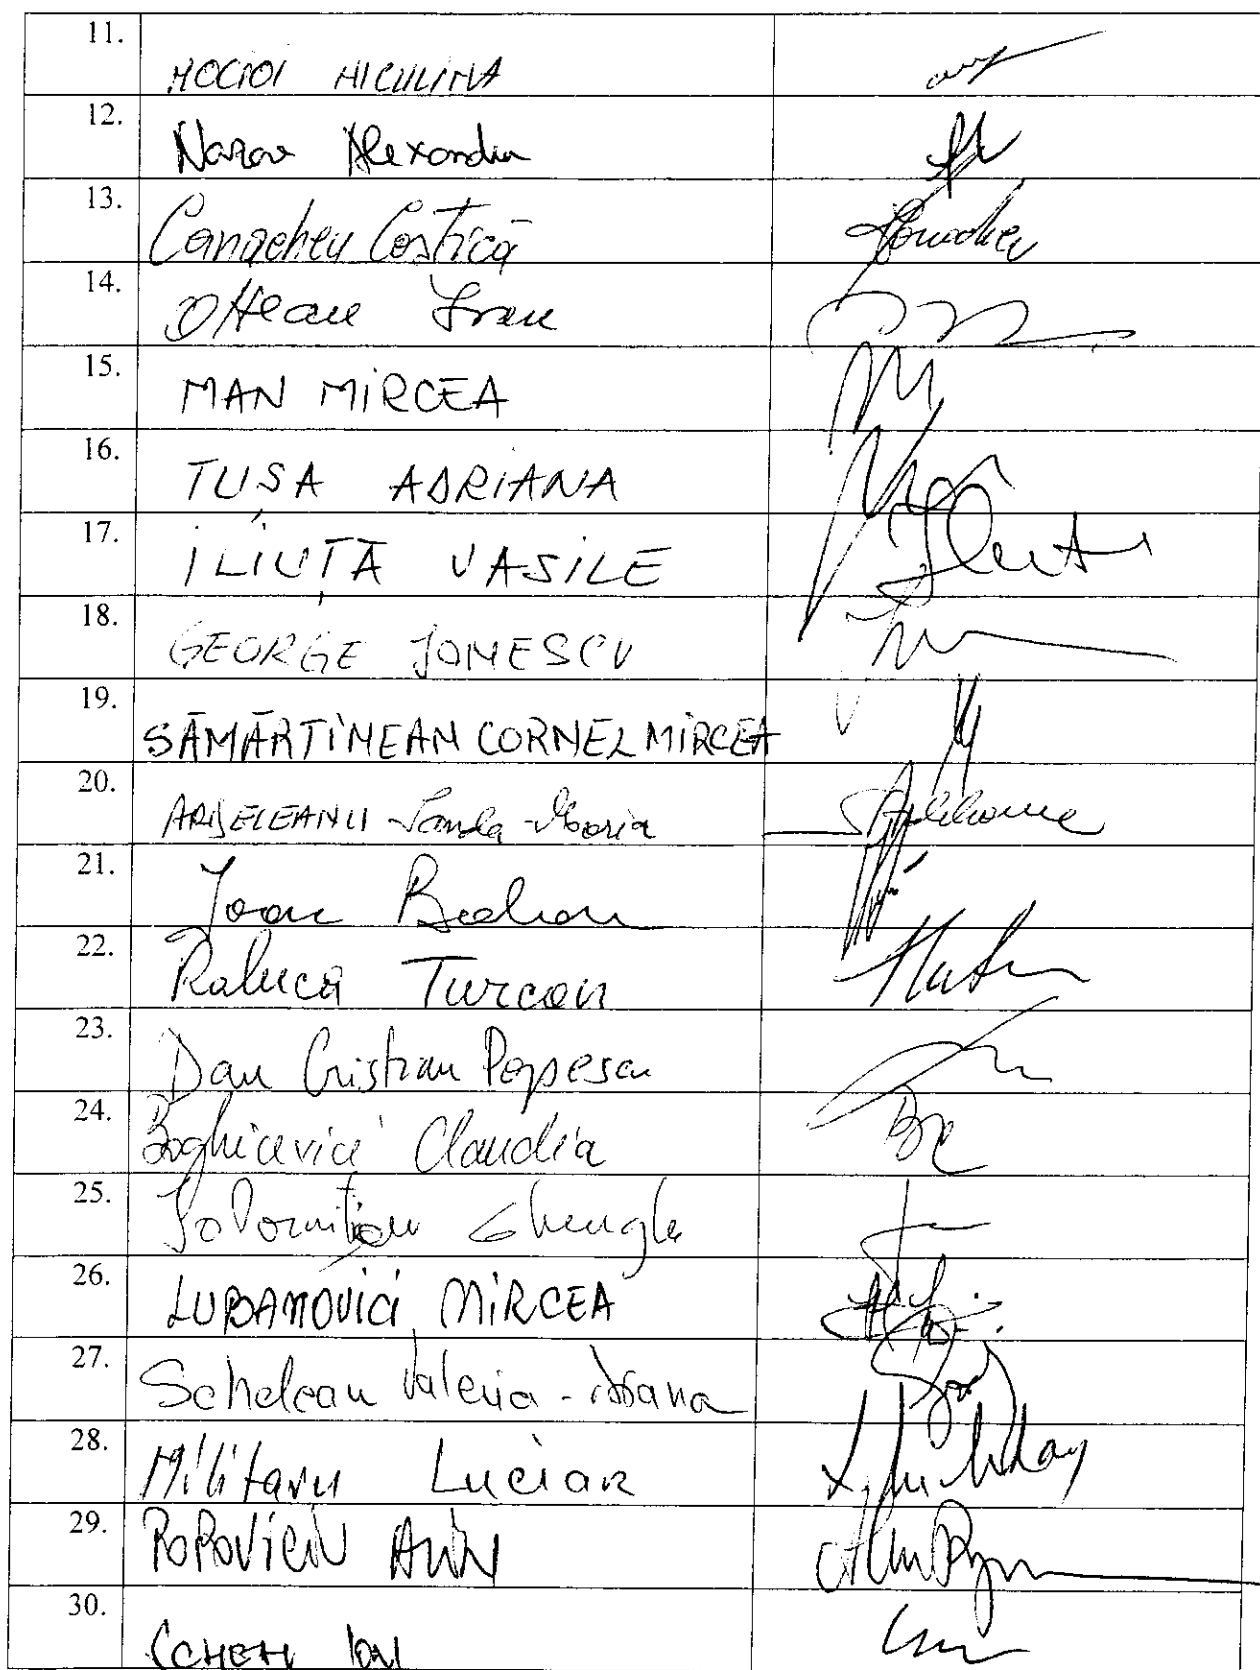 11. MOCIOI NICULINA
12. Nazare Alexandru
13. Canacheu Costică
14. Oltean Ioan
15. MAN MIRCEA
16. TUSA ADRIANA
17. ILIUȚĂ VASILE
18. GEORGE IONESCU
19. SĂMĂRTINEAN CORNEL MIRCEA
20. ARDELEANU Sanda-Maria
21. Ioan Balan
22. Raluca Turcan
23. Dan Cristian Popescu
24. Boghicevici Claudia
25. Ialomitianu Gheorghe
26. LUBANOVICI MIRCEA
27. Schelean Valeria-Diana
28. Militaru Lucian
29. POPOVICIU ALIN
30. ION